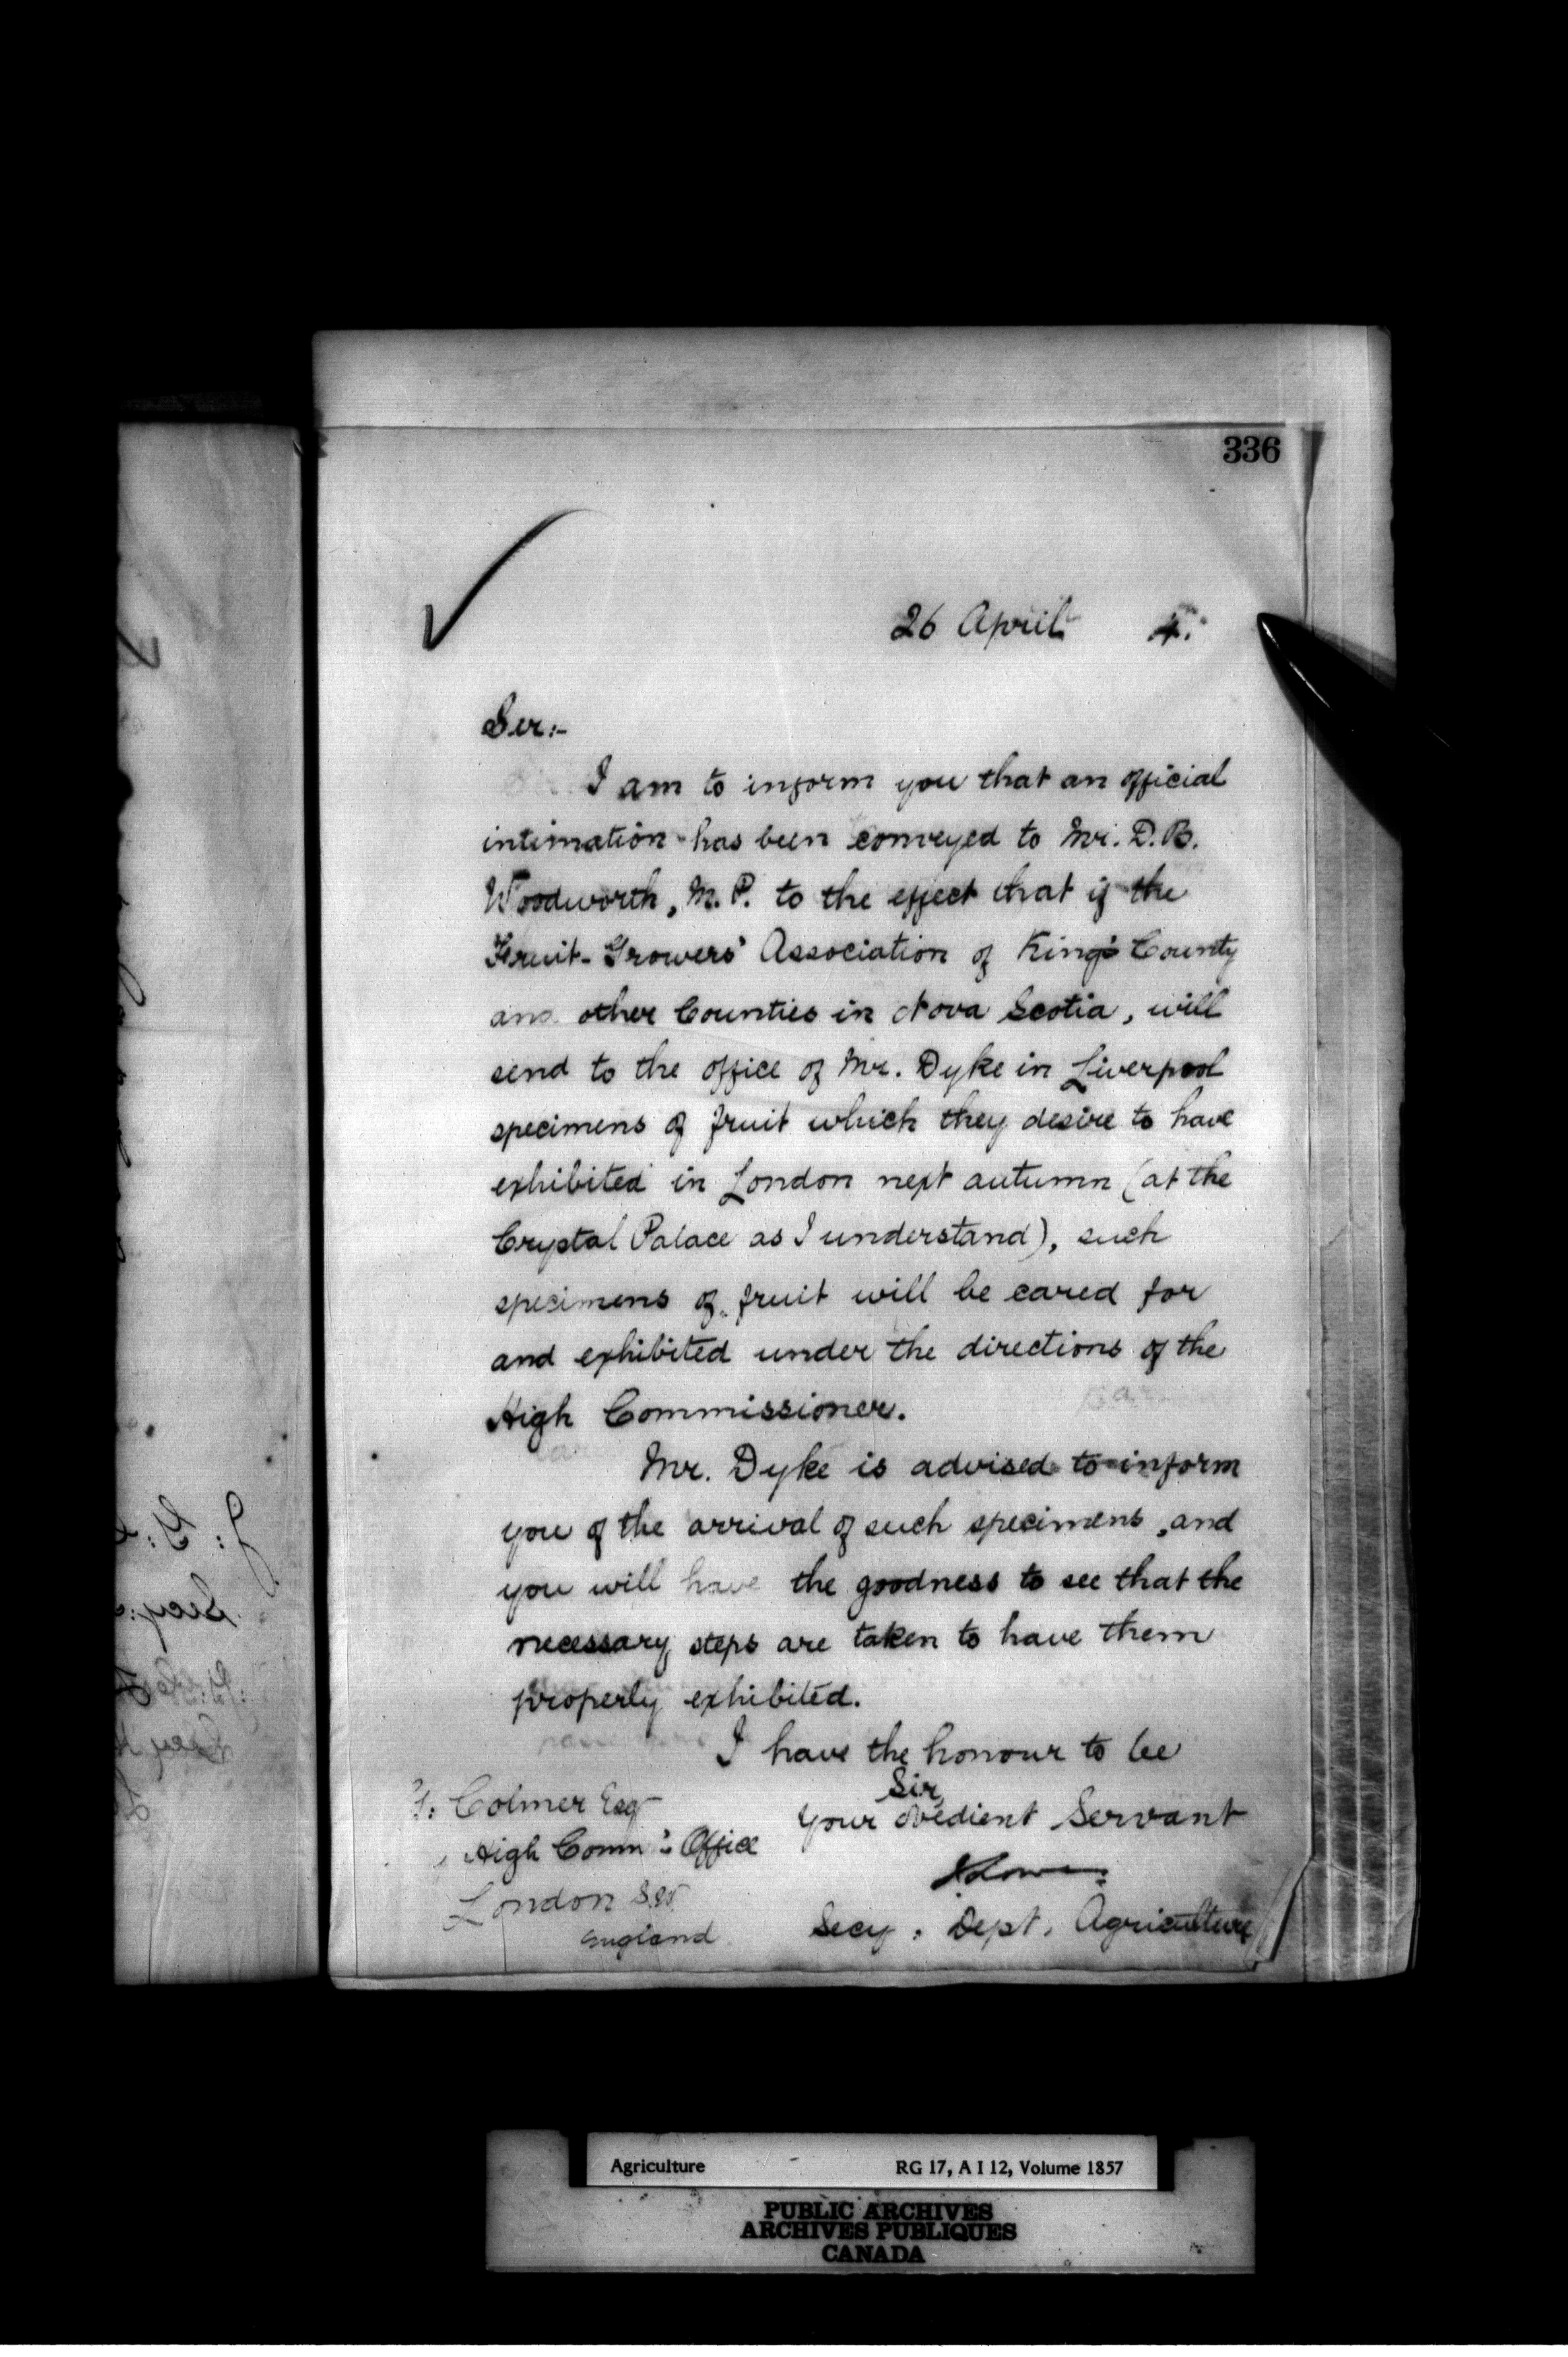 336
26 April 4.
Sir:-
I am to inform you that an official
intimation has been conveyed to Mr. D. B.
Woodworth, M. P. to the effect that if the
Fruit-Growers' Association of King's County
and other Counties in Nova Scotia, will
send to the office of Mr. Dyke in Liverpool
specimens of fruit which they desire to have
exhibited in London next autumn (at the
Crystal Palace as I understand), such
specimens of fruit will be cared for
and exhibited under the directions of the
High Commissioner.
Mr. Dyke is advised to inform
you of the arrival of such specimens, and
you will have the goodness to see that the
necessary steps are taken to have them
properly exhibited.
I have the honour to be
Sir,
Your obedient Servant
J. Lowe
Secy: Dept. Agriculture
Colmer Esq
High Comm's Office
London S.W.
England
Agriculture RG 17, A I 12, Volume 1857
PUBLIC ARCHIVES
ARCHIVES PUBLIQUES
CANADA